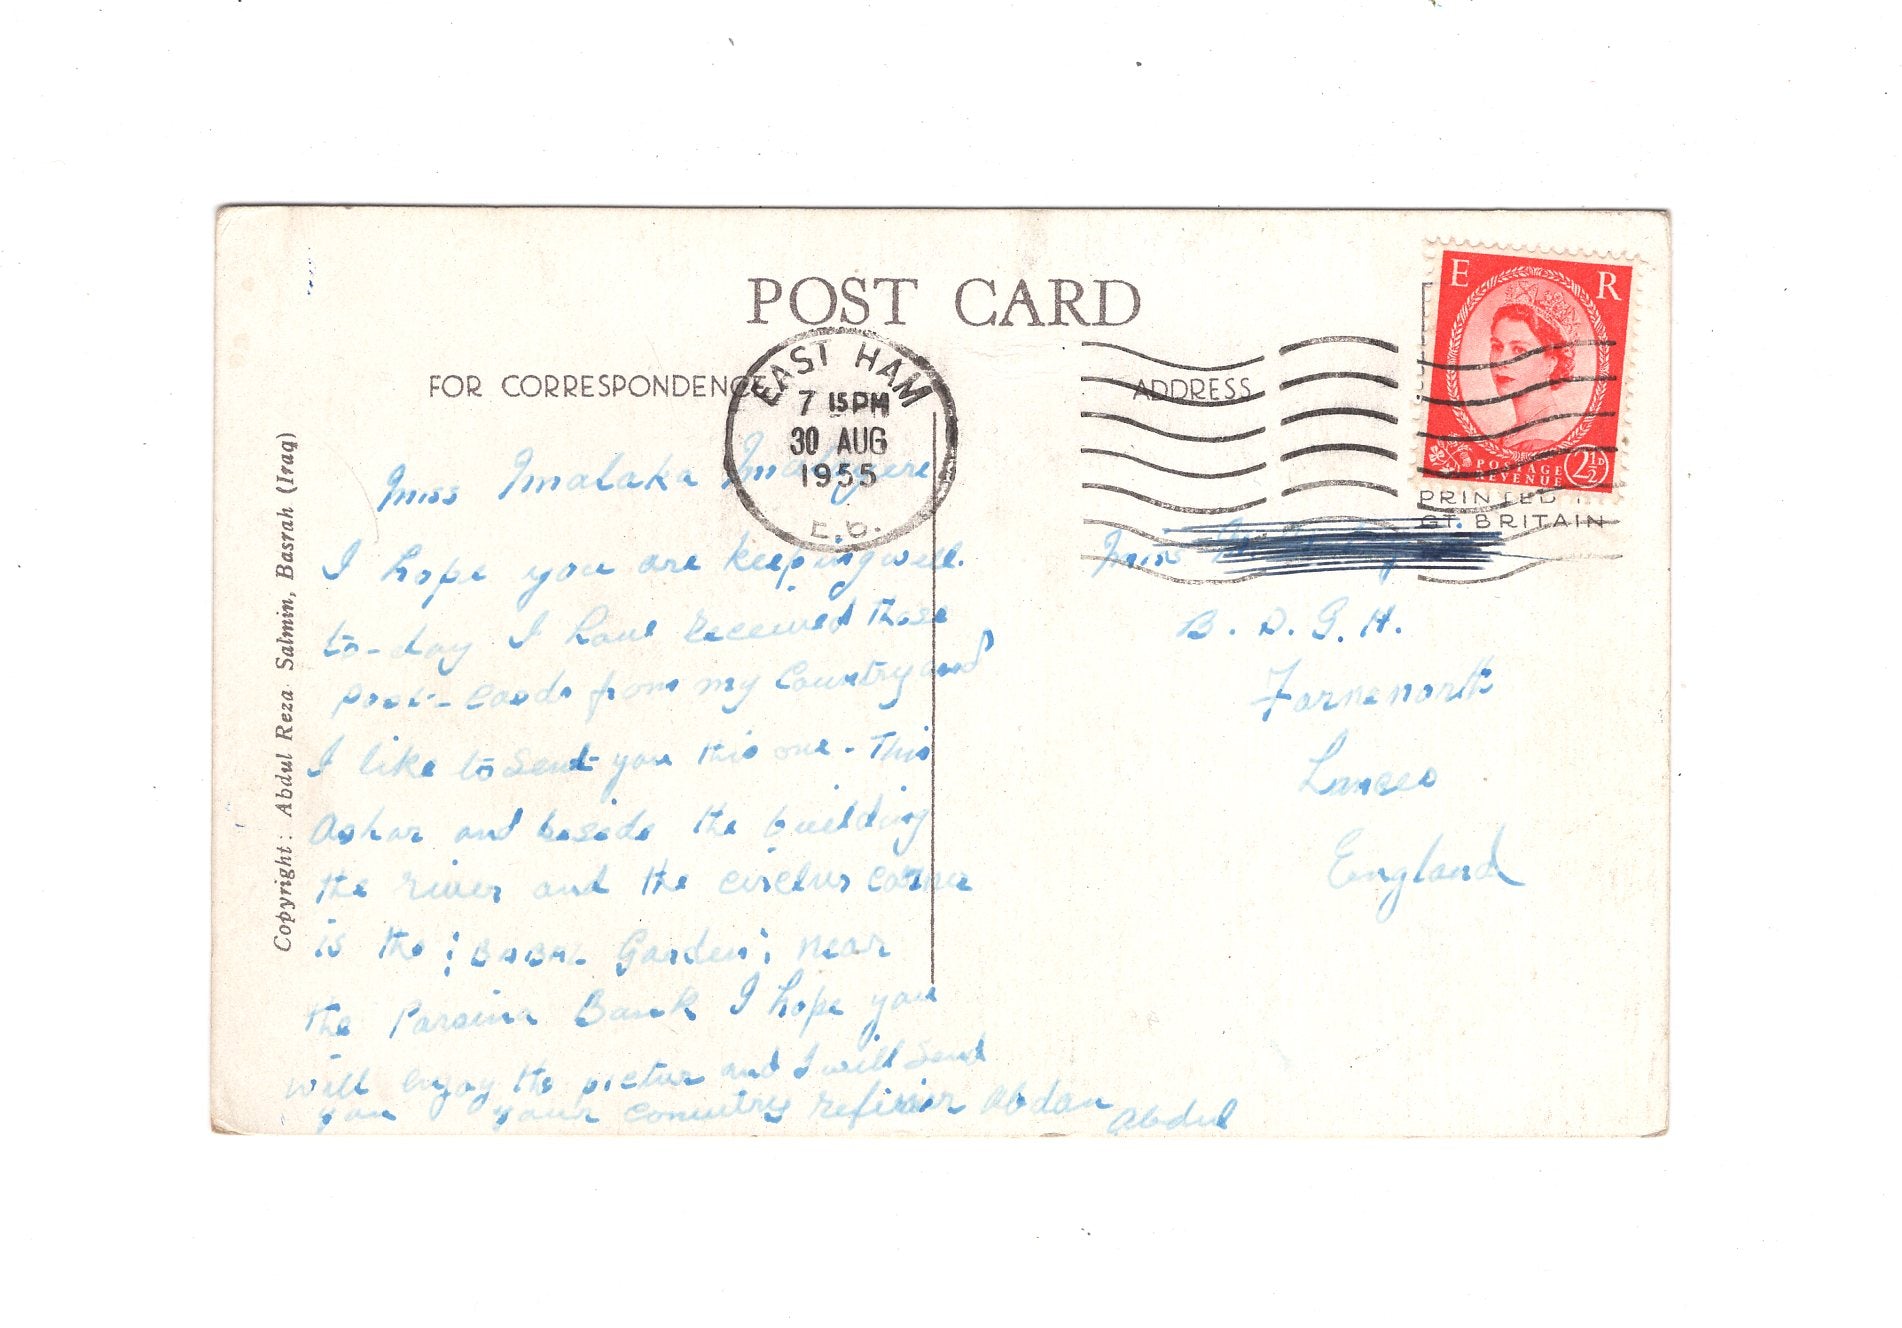 POST CARD
FOR CORRESPONDENCE
ADDRESS
EAST HAM
7 15 PM
30 AUG
1955
E.6.
E R
POSTAGE
REVENUE
2½D
PRINTED IN
GT. BRITAIN
Copyright: Abdul Reza Salmin, Basrah (Iraq)
Miss Malaka
I hope you are keeping well.
to-day I have received those
post-cards from my Country and
I like to send you this one - This
Ashar and beside the building
the river and the circlur corner
is the ; BABAL Garden ; near
the Bank I hope you
will enjoy the pictur and I will send
you your country refinir Abdan
Abdul
Miss
B. D. G. H.
Farneworth
Lances
England